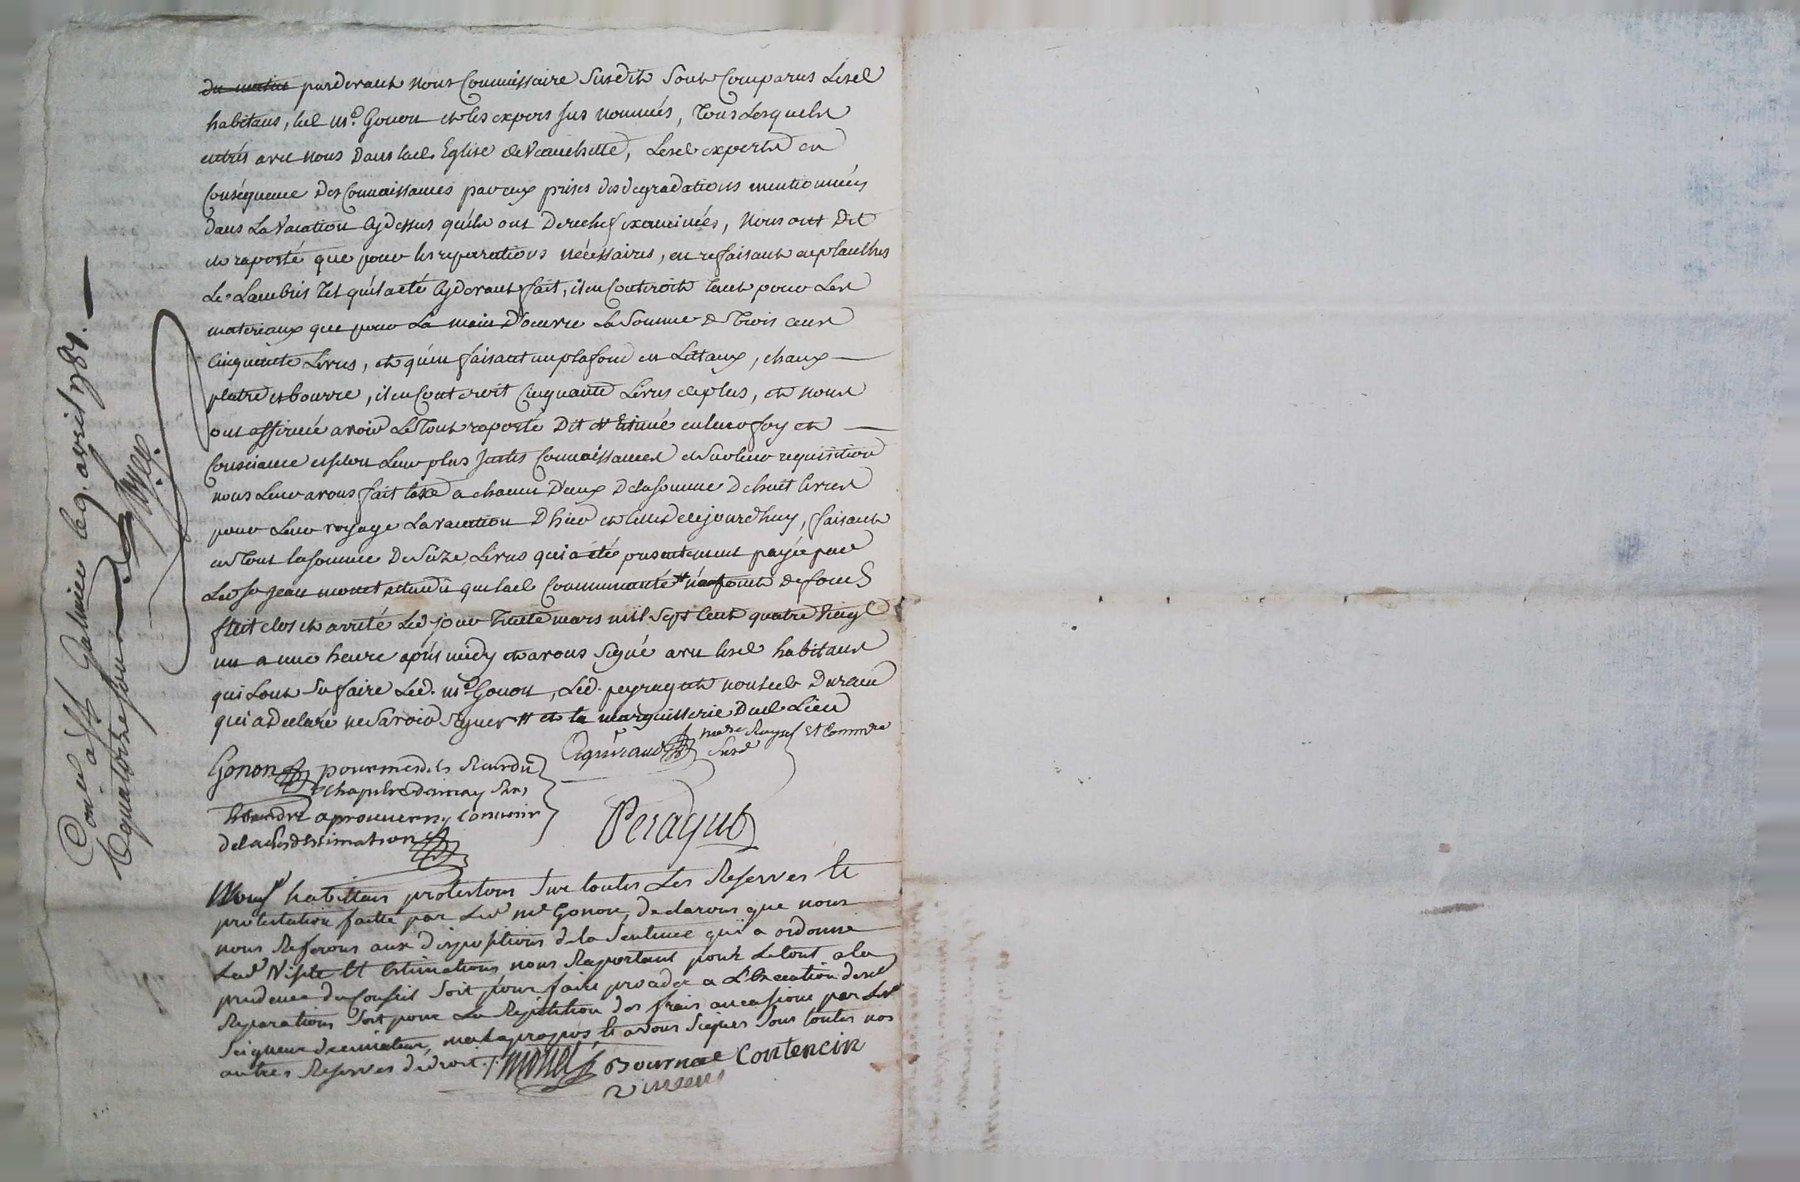 du matin pardevant nous Commissaire Susdit Sont Comparus Lesd
habitans, led me. Gonon et les expers sus nommés, Tous Lesquels
entrés avec nous Dans lad. Eglise de Veauchette, Lesd experts en
Conséquence des Connaissances par eux prises des degradations mentionnées
dans La Vacation Cydessus quils ont Derechef examinées, nous ont Dit
et raporté que pour les reparations nécessaires, en refaisant en planches
Le Lambris Tel quil a été Cydevant fait, il en Couteroit tant pour Les
materiaux que pour La main D'oeuvre La Somme de Trois cens
Cinquante Livres, et qu'en faisant un plafond en Litaux, chaux
platre et bourre, il en Couteroit Cinquante Livres de plus, et nous
ont affirmé avoir Le Tout raporté Dit et Estimé en leur foy et
Consciance et selon Leur plus Justes Connoissances et Sur leur requisition
nous Leur avons fait taxe a chacun D'eux De la somme De huit livres
pour Leur voyage La vacation D'hier et celle de jourd'huy, faisant
en Tout la somme De Seize Livres qui a été presentement payée par
Led Sr Jean monet attendu que lad Communauté # n'a point de fonds
fait clos et arrêté Led jour Trente mars mil Sept Cent quatre Vingt
un a une heure après midy et avons Signé avec lesd habitans
qui L'ont Su faire Led. me. Gonon, Led. peyragut et non led Durand
qui a Declaré ne Savoir Signer # et la marguillerie Dud Lieu
Gonon pour mesd. Srs
chapitre d'ainay Sans
entendre aprouver ny Convenir
de lad Estimation
Peragut
Nous habittans protestons Sur toutes Les Reserves Et
protestation faitte par Led me Gonon, declarons que nous
nous Referons aux dispositions de la Sentence qui a ordonné
Lad Visite Et Estimations nous Raportant pour Le tout a la
prudence du Conseil Soit pour faire proceder a L'Execution desd
Reparations Soit pour La Repetition des frais occasioné par Led
Seigneur decimateur, mal apropos, Et avons Signés Sous toutes nos
autres Reserves de droit. monet Bournat Contencin
Vincens
quatorze sous